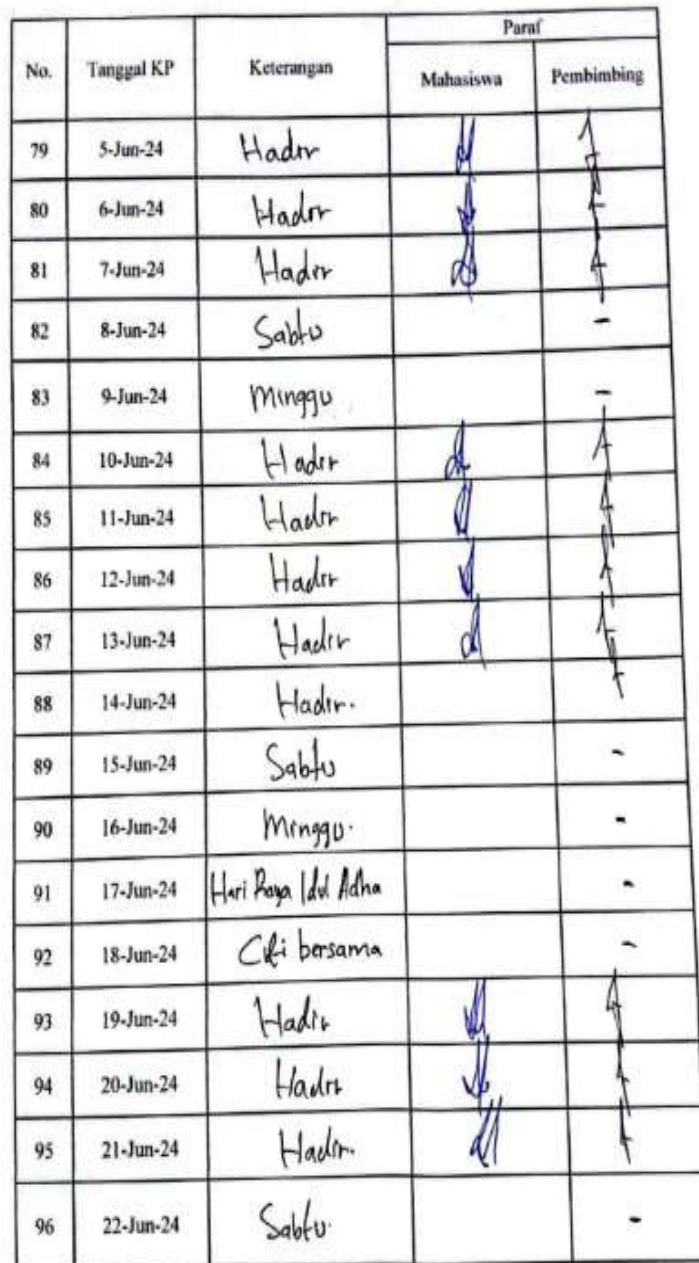 No. Tanggal KP Keterangan Paraf
Mahasiswa Pembimbing
79 5-Jun-24 Hadir
80 6-Jun-24 Hadir
81 7-Jun-24 Hadir
82 8-Jun-24 Sabtu -
83 9-Jun-24 Minggu -
84 10-Jun-24 Hadir
85 11-Jun-24 Hadir
86 12-Jun-24 Hadir
87 13-Jun-24 Hadir
88 14-Jun-24 Hadir.
89 15-Jun-24 Sabtu -
90 16-Jun-24 Minggu. -
91 17-Jun-24 Hari Raya Idul Adha -
92 18-Jun-24 Cuti bersama -
93 19-Jun-24 Hadir
94 20-Jun-24 Hadir
95 21-Jun-24 Hadir.
96 22-Jun-24 Sabtu. -